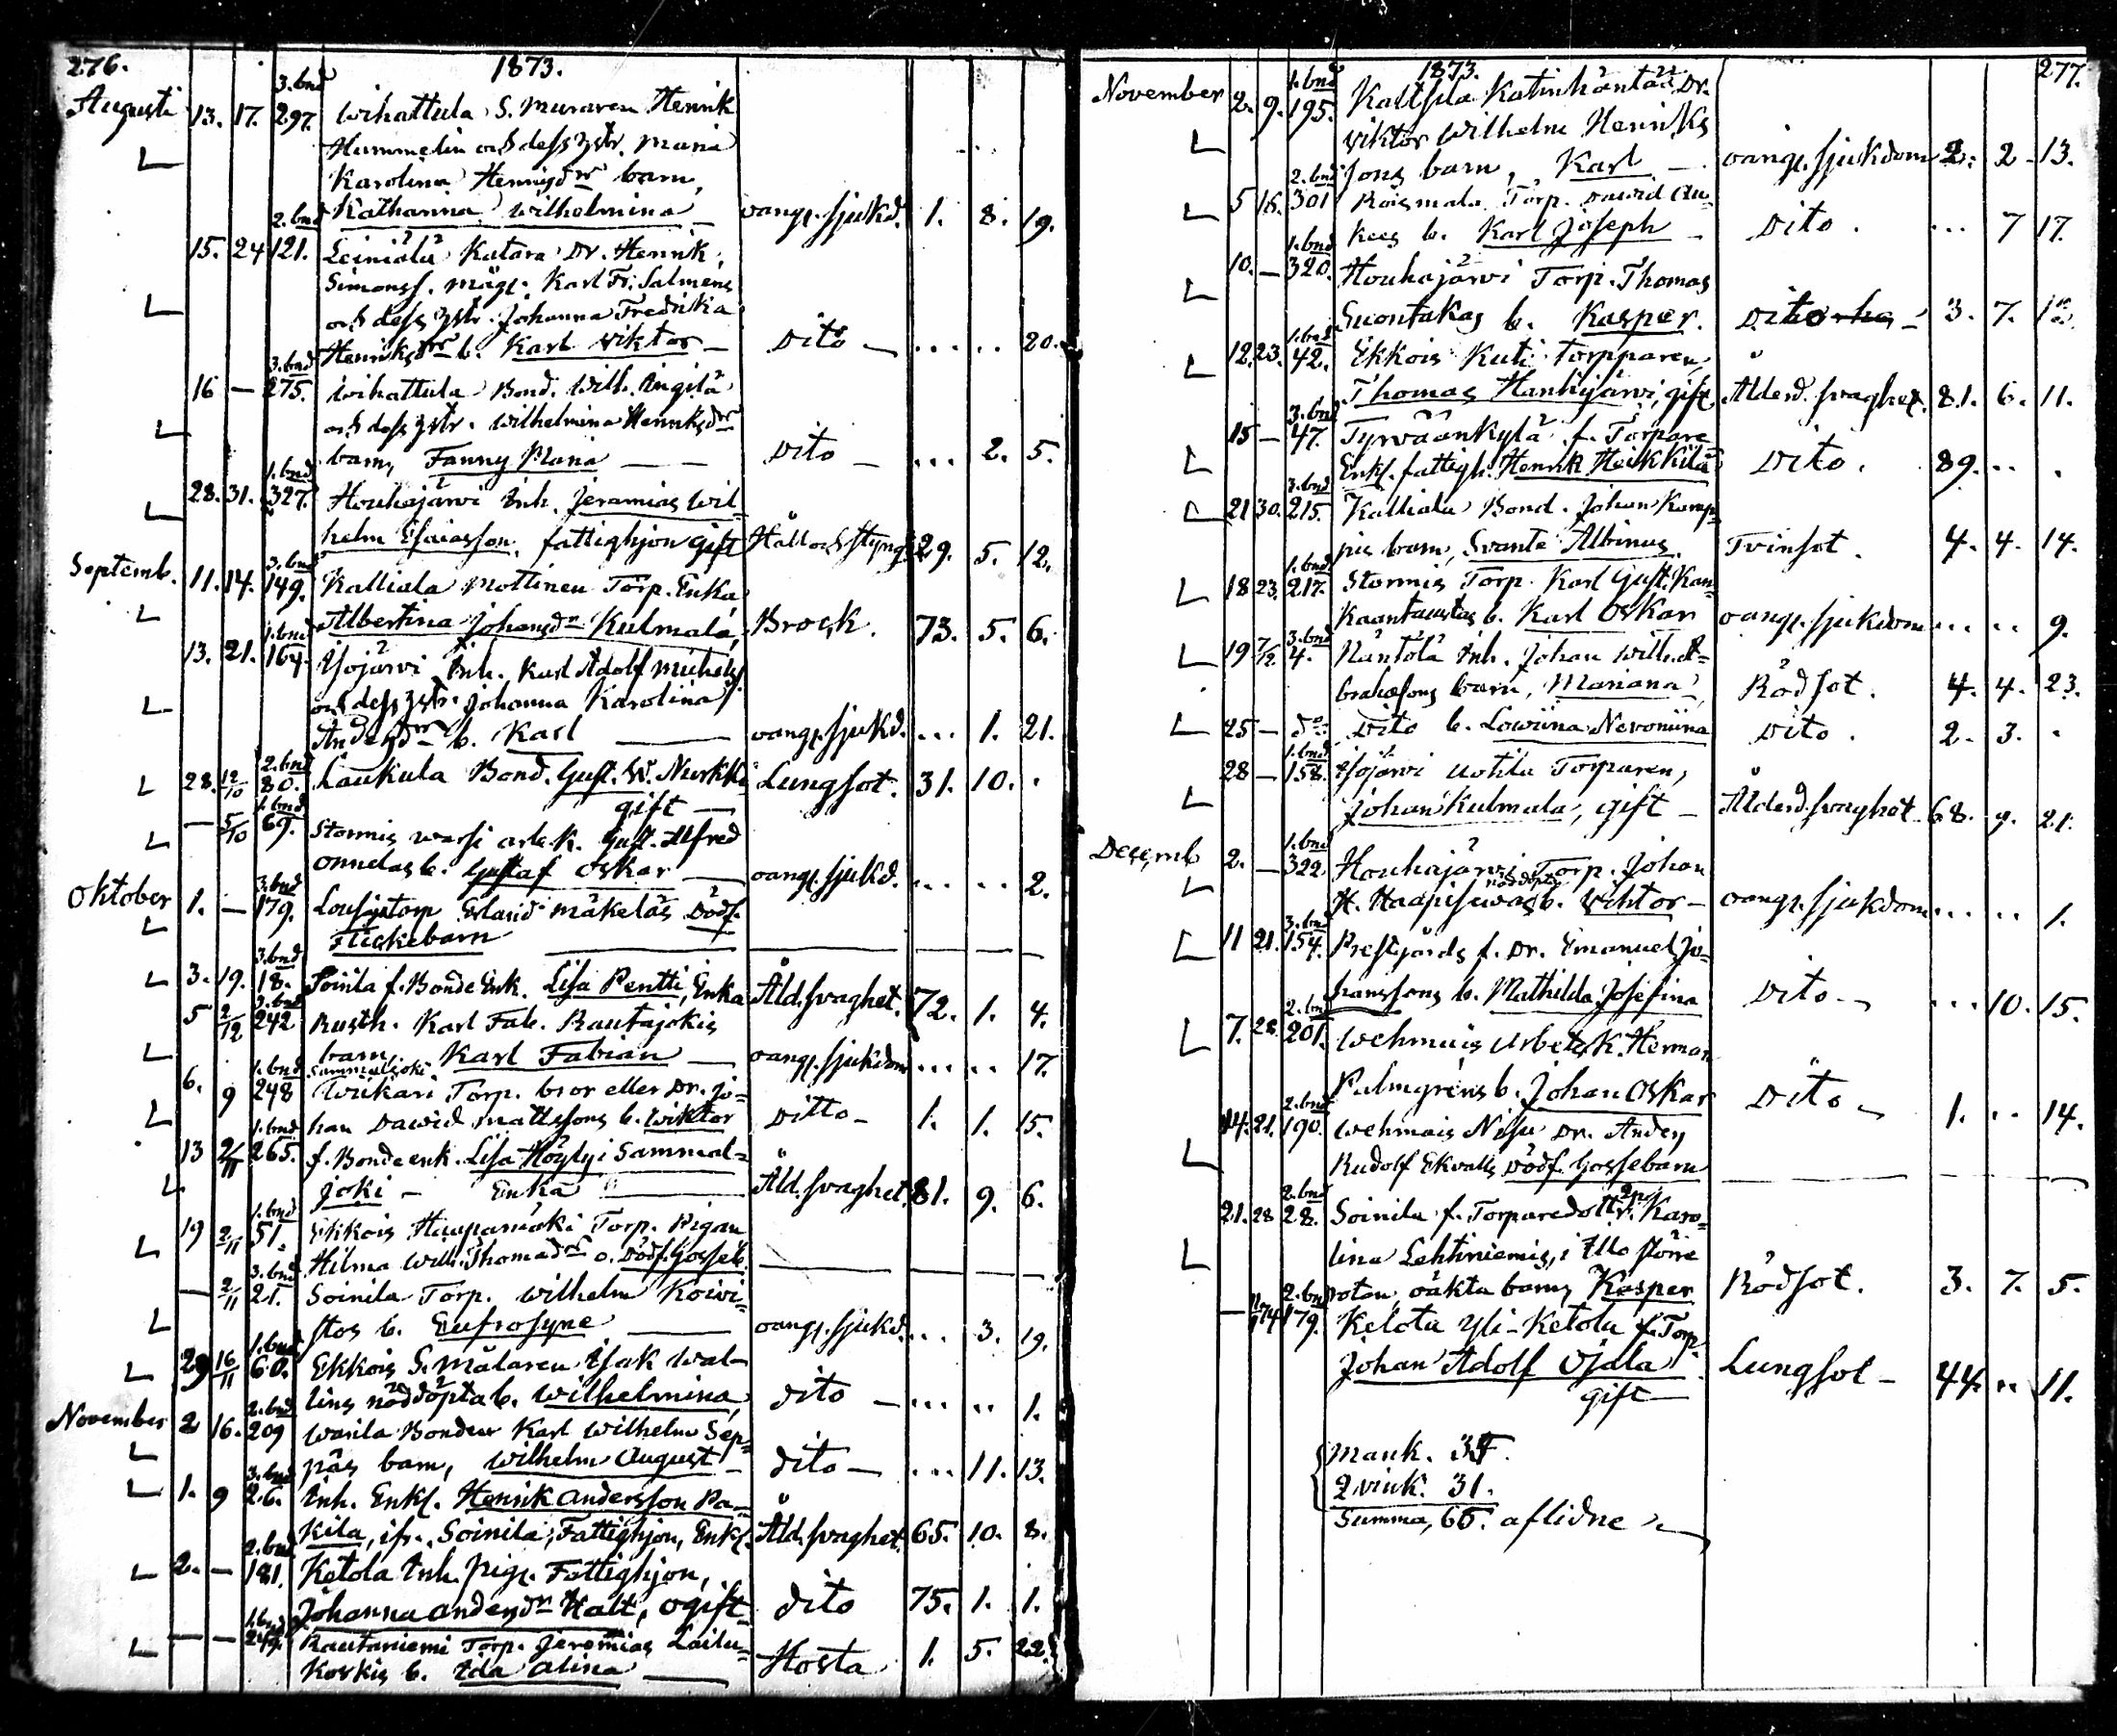 276.
1873.
3. bnd
Augusti 13. 17. 297. Wihattula S. Muraren Henrik
Hummelin och dess hstr. Maria
Karolina Henrigdr barn,
Katharina Wilhelmina – oangf. sjukd. 1. 8. 19.
2. bnd
15. 24 121. Leiniälä Katara Dr. Henrik
Simonss. mågs. Karl Fr. Salmens
och dess hstr. Johanna Fredrika
Henriksdr b. Karl Viktor – Dito – ... .. 20.
3. bnd
16 – 275. Wihattula Bond. Wilh. Ängilä
och dess hstr. Wilhelmina Henriksdr
barn, Fanny Maria – – Dito – ... 2. 5.
1. bnd
28. 31. 327. Houhajärvi Inh. Jeramias Wil=
helm Esaiasson, fattighjon gift Håll och Styng 29. 5. 12.
3. bnd
Septemb. 11. 14. 149. Kalliala Mottinen Torp. Enka
Albertina Johansdr Kulmala, Brosk. 73. 5. 6.
1. bnd
13. 21. 164. Ylojärvi Inh. Karl Adolf Michelss.
och dess hstr. Johanna Karolina
Andersdr b. Karl – oangf. sjukd. ... 1. 21.
2. bnd
28. 12/10 80. Laukula Bond. Gust. W. Nurkki Lungsot. 31. 10. .
gift –
1. bnd
– 5/10 69. Stormis Warsi arb. k. Gust. Alfred
Onnelas b. Gustaf Oskar – oangf. sjukd. ... .. 2.
3. bnd
Oktober 1. – 179. Lousjatorp Erland Mäkeläs Dödf.
Flickebarn
3. bnd
3. 19. 18. Soinila f. Bonde Enk. Lisa Pentti, Enka Åld. svaghet. 72. 1. 4.
3. bnd
5 2/12 242 Rusth. Karl Fab. Rautajokis
barn, Karl Fabian – oangf. sjukdom ... .. 17.
1. bnd Sammaljoki
6. 9 248 Wiikari Torp. bror eller Dr. Jo=
han Dawid Mattssons b. Wiktor Ditto – 1. 1. 15.
1. bnd
13 2/11 265. f. Bonde enk. Lisa Höyly i Sammal=
joki – Enka – Åld. svaghet 81. 9. 6.
1. bnd
19 2/11 51. Ekkois Haapamäki Torp. Pigan
Hilma Wilh. Thomadr o. Dödf. Gosseb.
3. bnd
– 2/11 21. Soinila Torp. Wilhelm Koivi=
stos b. Eufrosyne – oangf. sjukd. ... 3. 19.
1. bnd
29 16/11 60. Ekkois S. Målaren Isak Wal=
lins nöddöpta b. Wilhelmina, dito – ... .. 1.
2. bnd
November 2 16. 209 Warila Bonden Karl Wilhelm Sep=
päs barn, Wilhelm August – dito – ... 11. 13.
3. bnd
1. 9 26. Inh. Enkl. Henrik Andersson Pa=
kila, ifr. Soinila, Fattighjon, Enkl. Åld. svaghet. 65. 10. 8.
2. bnd
2. – 181. Ketola Inh. pigs. Fattighjon,
Johanna Andersdr Hatt, ogift dito 75. 1. 1.
1. bnd
– – 244. Rautaniemi Torp. Jeremias Lailu=
koskis b. Ida Alina – Hosta 1. 5. 22.
277.
1873.
1. bnd
November 2. 9. 195. Kaltsila Katinhäntää, Dr.
Viktor Wilhelm Henriks
sons barn, Karl – oangf. sjukdom 2. 2 13.
2. bnd
5 16. 301 Roismala Torp. Dawid Au=
kees b. Karl Joseph – Dito . ... 7 17.
1. bnd
10. – 320. Houhajärvi Torp. Thomas
Suontakas b. Kasper. Dito – 3. 7.
1. bnd
12. 23. 42. Ekkois Kuti Torpparen,
Thomas Hanhijärvi, gift Ålderd. svaghet. 81. 6. 11.
3. bnd
15 – 47. Tyrväänkylä f. Torpare
Enkl. fattigh. Henrik Heikkilä Dito . 89. .. .
3. bnd
21 30. 215. Kalliala Bond. Johan Kamp=
pis barn, Svante Albinus Tvinsot . 4. 4. 14.
1. bnd
18 23. 217. Stormis Torp. Karl Gust. Kan=
kaantaustas b. Karl Oskar oangf. sjukdom ... .. 9.
3. bnd
19 7/12 4. Näntölä Inh. Johan Wilh. A=
brahasons barn, Mariana Rödsot. 4. 4. 23.
25 – do Dito b. Lowiina Neroniina Dito . 2. 3. .
1. bnd
28 – 158. Ylojärvi Uotila Torparen,
Johan Kulmala, gift – Ålderd. svaghet 68. 9. 21.
1. bnd
Decemb. 2. – 322. Houhajärvi Torp. Johan
nöddöpta
H. Haapisuvas b. Viktor – oangf. sjukdom ... .. 1.
3. bnd
11 21. 154. Prestgårds f. Dr. Emanuel Jo=
hanssons b. Mathilda Josefina Dito – ... 10. 15.
2. bnd
7. 28. 201. Wehmais Arbets K. Herman
Palmgréns b. Johan Oskar Dito – 1. .. 14.
2. bnd
14. 21. 190. Wehmais Nisu Dr. Anders
Rudolf Ekvalls Dödf. Gossebarn
2. bnd
21. 28 28. Soinila f. Torparedottr. Karo=
lina Lehtiniemis, i Illo större
roten, oäkta barn, Kasper Rödsot. 3. 7. 5.
2. bnd
– 179. Ketola Yli-Ketola f. Torp.
Johan Adolf Ojala Lungsot – 44. .. 11.
gift –
Mank. 34.
Qvink. 31.
Summa, 65. aflidne